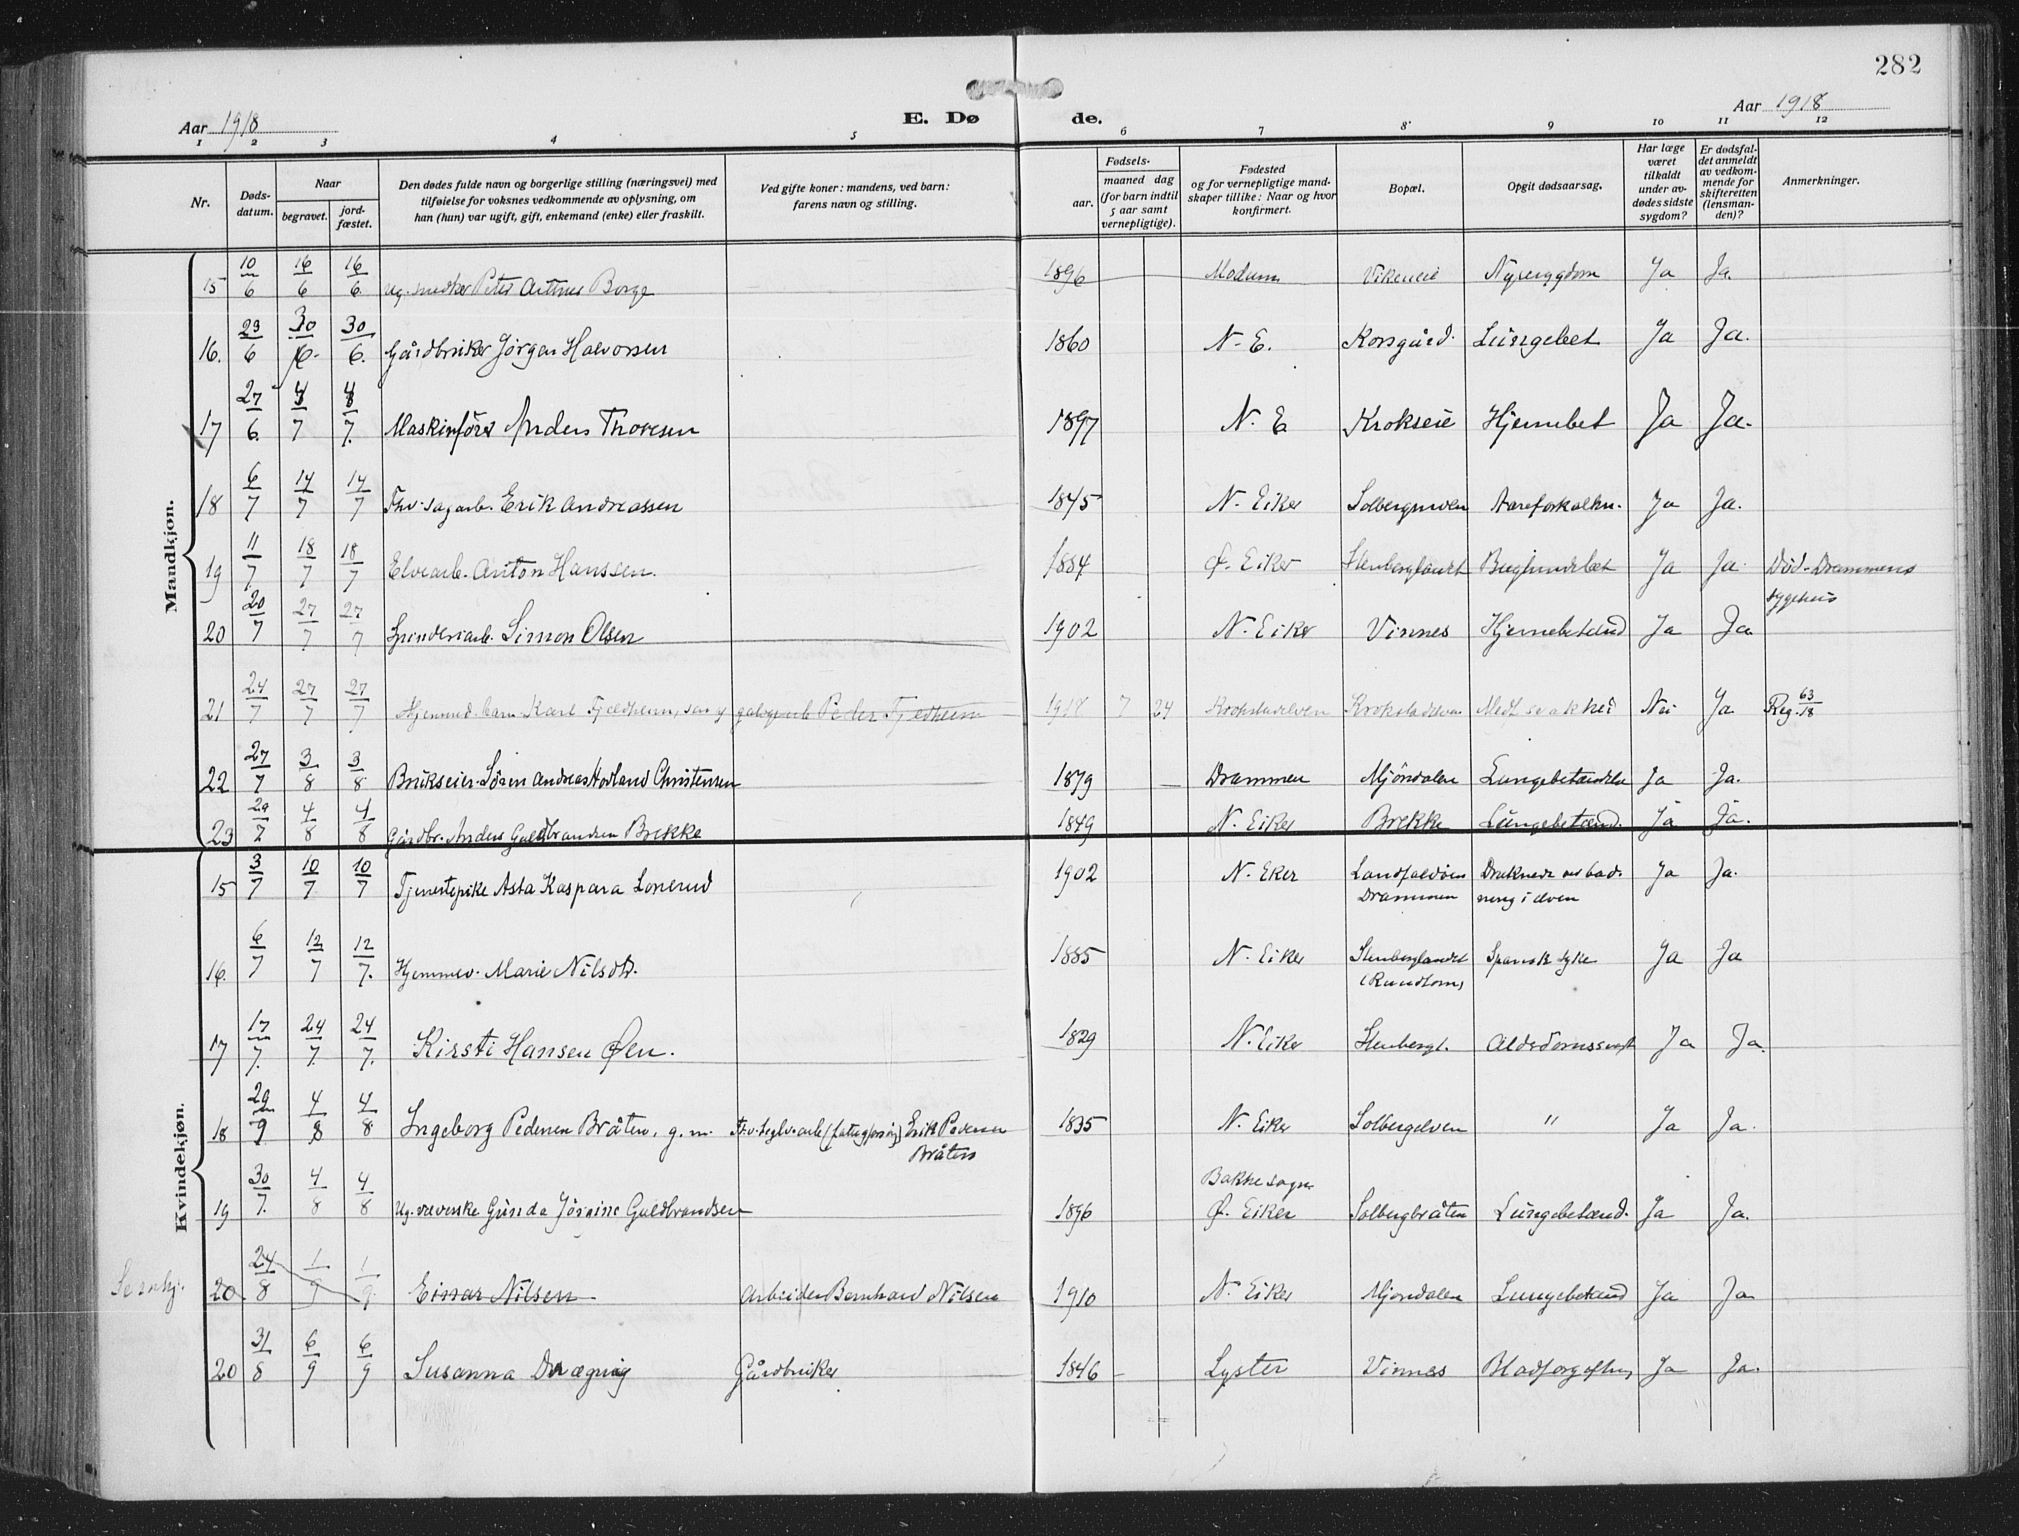 282
Aar 1918
E. Dø
de.
Aar 1918
1 2 3 4 5 6 7 8 9 10 11 12
Nr.
Døds-
datum.
Naar
begravet.
jord-
fæstet.
Den dødes fulde navn og borgerlige stilling (næringsvei) med
tilføielse for voksnes vedkommende av oplysning, om
han (hun) var ugift, gift, enkemand (enke) eller fraskilt.
Ved gifte koner: mandens, ved barn:
farens navn og stilling.
Fødsels-
aar.
maaned dag
(for barn indtil
5 aar samt
vernepligtige).
Fødested
og for vernepligtige mand-
skaper tillike: Naar og hvor
konfirmert.
Bopæl.
Opgit dødsaarsag.
Har læge
været
tilkaldt
under av-
dødes sidste
sygdom?
Er dødsfal-
det anmeldt
av vedkom-
mende for
skifteretten
(lensman-
den)?
Anmerkninger.
Mandkjøn.
15 10/6 16/6 16/6 Ug. snedker Peter Artmus Borge 1896 Modum Vikeneie Nyresygdom Ja Ja.
16. 23/6 30/6 30/6. Gårdbruker Jørgen Halvorsen 1860 N-E. Korsgård. Lungebet Ja Ja.
17 27/6. 4/7 4/7. Maskinfører Anders Thoresen 1897 N. E Krokseie Hjernebet Ja Ja.
18 6/7 14/7 14/7 Fhv. sagarb. Erik Andreassen 1845 N. Eiker Solbergmoen Aareforkalkn. Ja Ja.
19 11/7 18/7 18/7 Elvearb. Anton Hanssen. 1884 Ø. Eiker Stenberglandet Bughindebet Ja Ja. Død-Drammens
sygehus
20 20/7 27/7 27/7 Spinderiarb. Simon Olsen 1902 N. Eiker Vinnes Hjernebetænd Ja Ja
21 24/7 27/7 27/7 Hjemmed. barn Karl Fjeldheim, søn af Peder Fjeldheim 1918 7 24 Krokstadelven Krokstadelven Medf. svakhet Nei Ja Reg. 63/18
22 27/7 3/8 3/8 Brukseier Søren Andreas Hovland Christensen 1879 — Drammen Mjöndalen Lungebetændelse Ja Ja.
23 29/7 4/8 4/8 Gårdbr. Anders Guldbrandsen Brekke 1849 N. Eiker Brekke Lungebetænd. Ja Ja.
Kvindekjøn.
15 3/7 10/7 10/7 Tjenestepike Asta Kaspara Lonerud 1902 N. Eker Landfaldöen Druknede ved bad- Ja Ja.
Drammen ning i elven
16. 6/7 12/7 12/7. Hjemmev. Marie Nilsdtr. 1885 N. Eiker Stenberglandet Spansk syke Ja Ja
(Rundtom)
17 17/7. 24/7. 24/7. Kirsti Hansen Øen. 1829 N. Eiker Stenbergl. Alderdomssvagh Ja Ja.
18 29/7 4/8 4/8 Ingeborg Pedersen Bråten, g. m. Fhv. teglv.arb (fattigforsörg) Erik Pedersen 1835 N. Eiker Solbergelven " Ja Ja.
Bråten
19 30/7. 4/8 4/8 Ug. væverske Gunda Jørgine Guldbrandsen 1896 Bakke sogn
Ø. Eiker Solbergbråten Lungebetænd. Ja Ja.
20 24/8 1/9 1/9 Einar Nilsen Arbeider Bernhard Nilsen 1910 N. Eiker Mjøndalen Lungebetænd Ja Ja
20 31/8 6/9 6/9 Susanna Drægni Gårdbruker 1846 - Lyster Vinnes Blodforgiftn. Ja Ja.